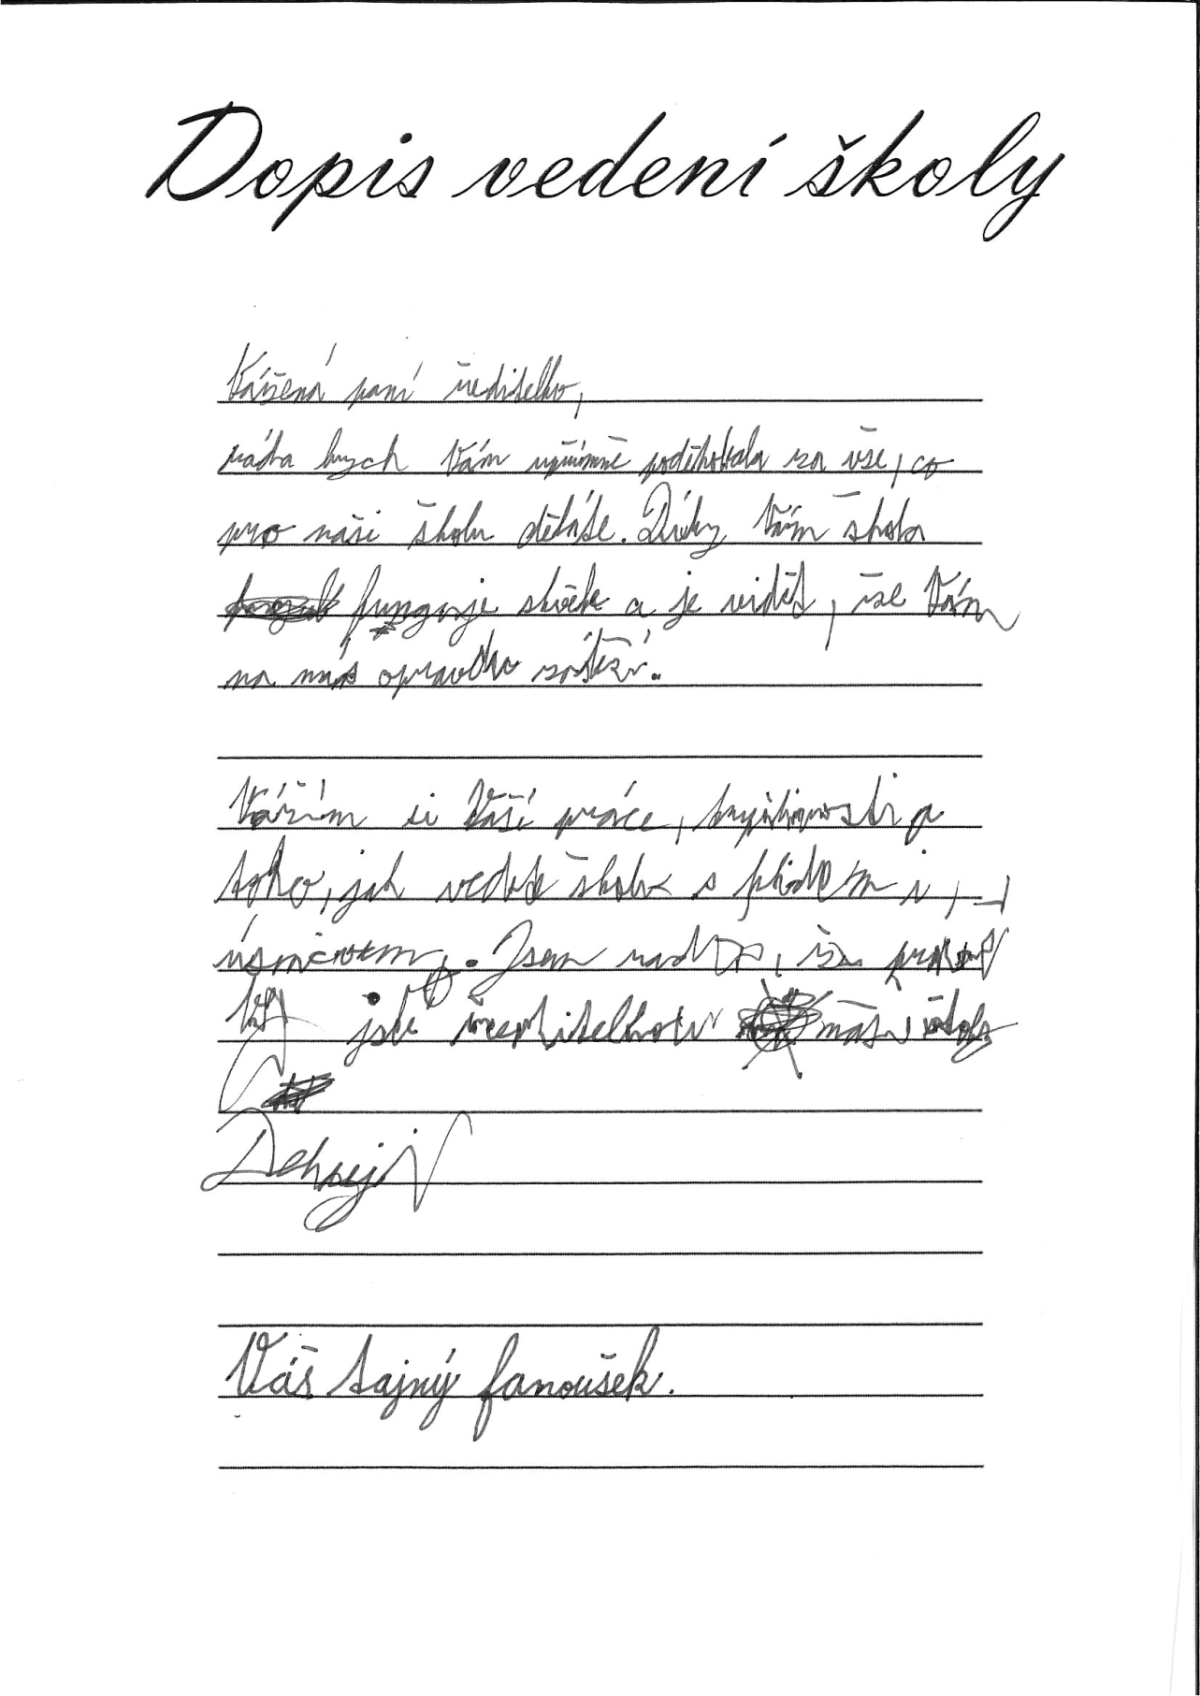 Dopis vedení školy
Vážená paní ředitelko,
ráda bych Vám upřímně poděkovala za vše, co
pro naši školu děláte. Díky Vám škola
funguje skvěle a je vidět, že Vám
na nás opravdu záleží.
Vážím si Vaší práce, trpělivosti a
toho, jak vedete školu s klidem i
úsměvem. Jsem ráda, že právě
Vy jste ředitelkou naší školy
Děkuji
Váš tajný fanoušek.